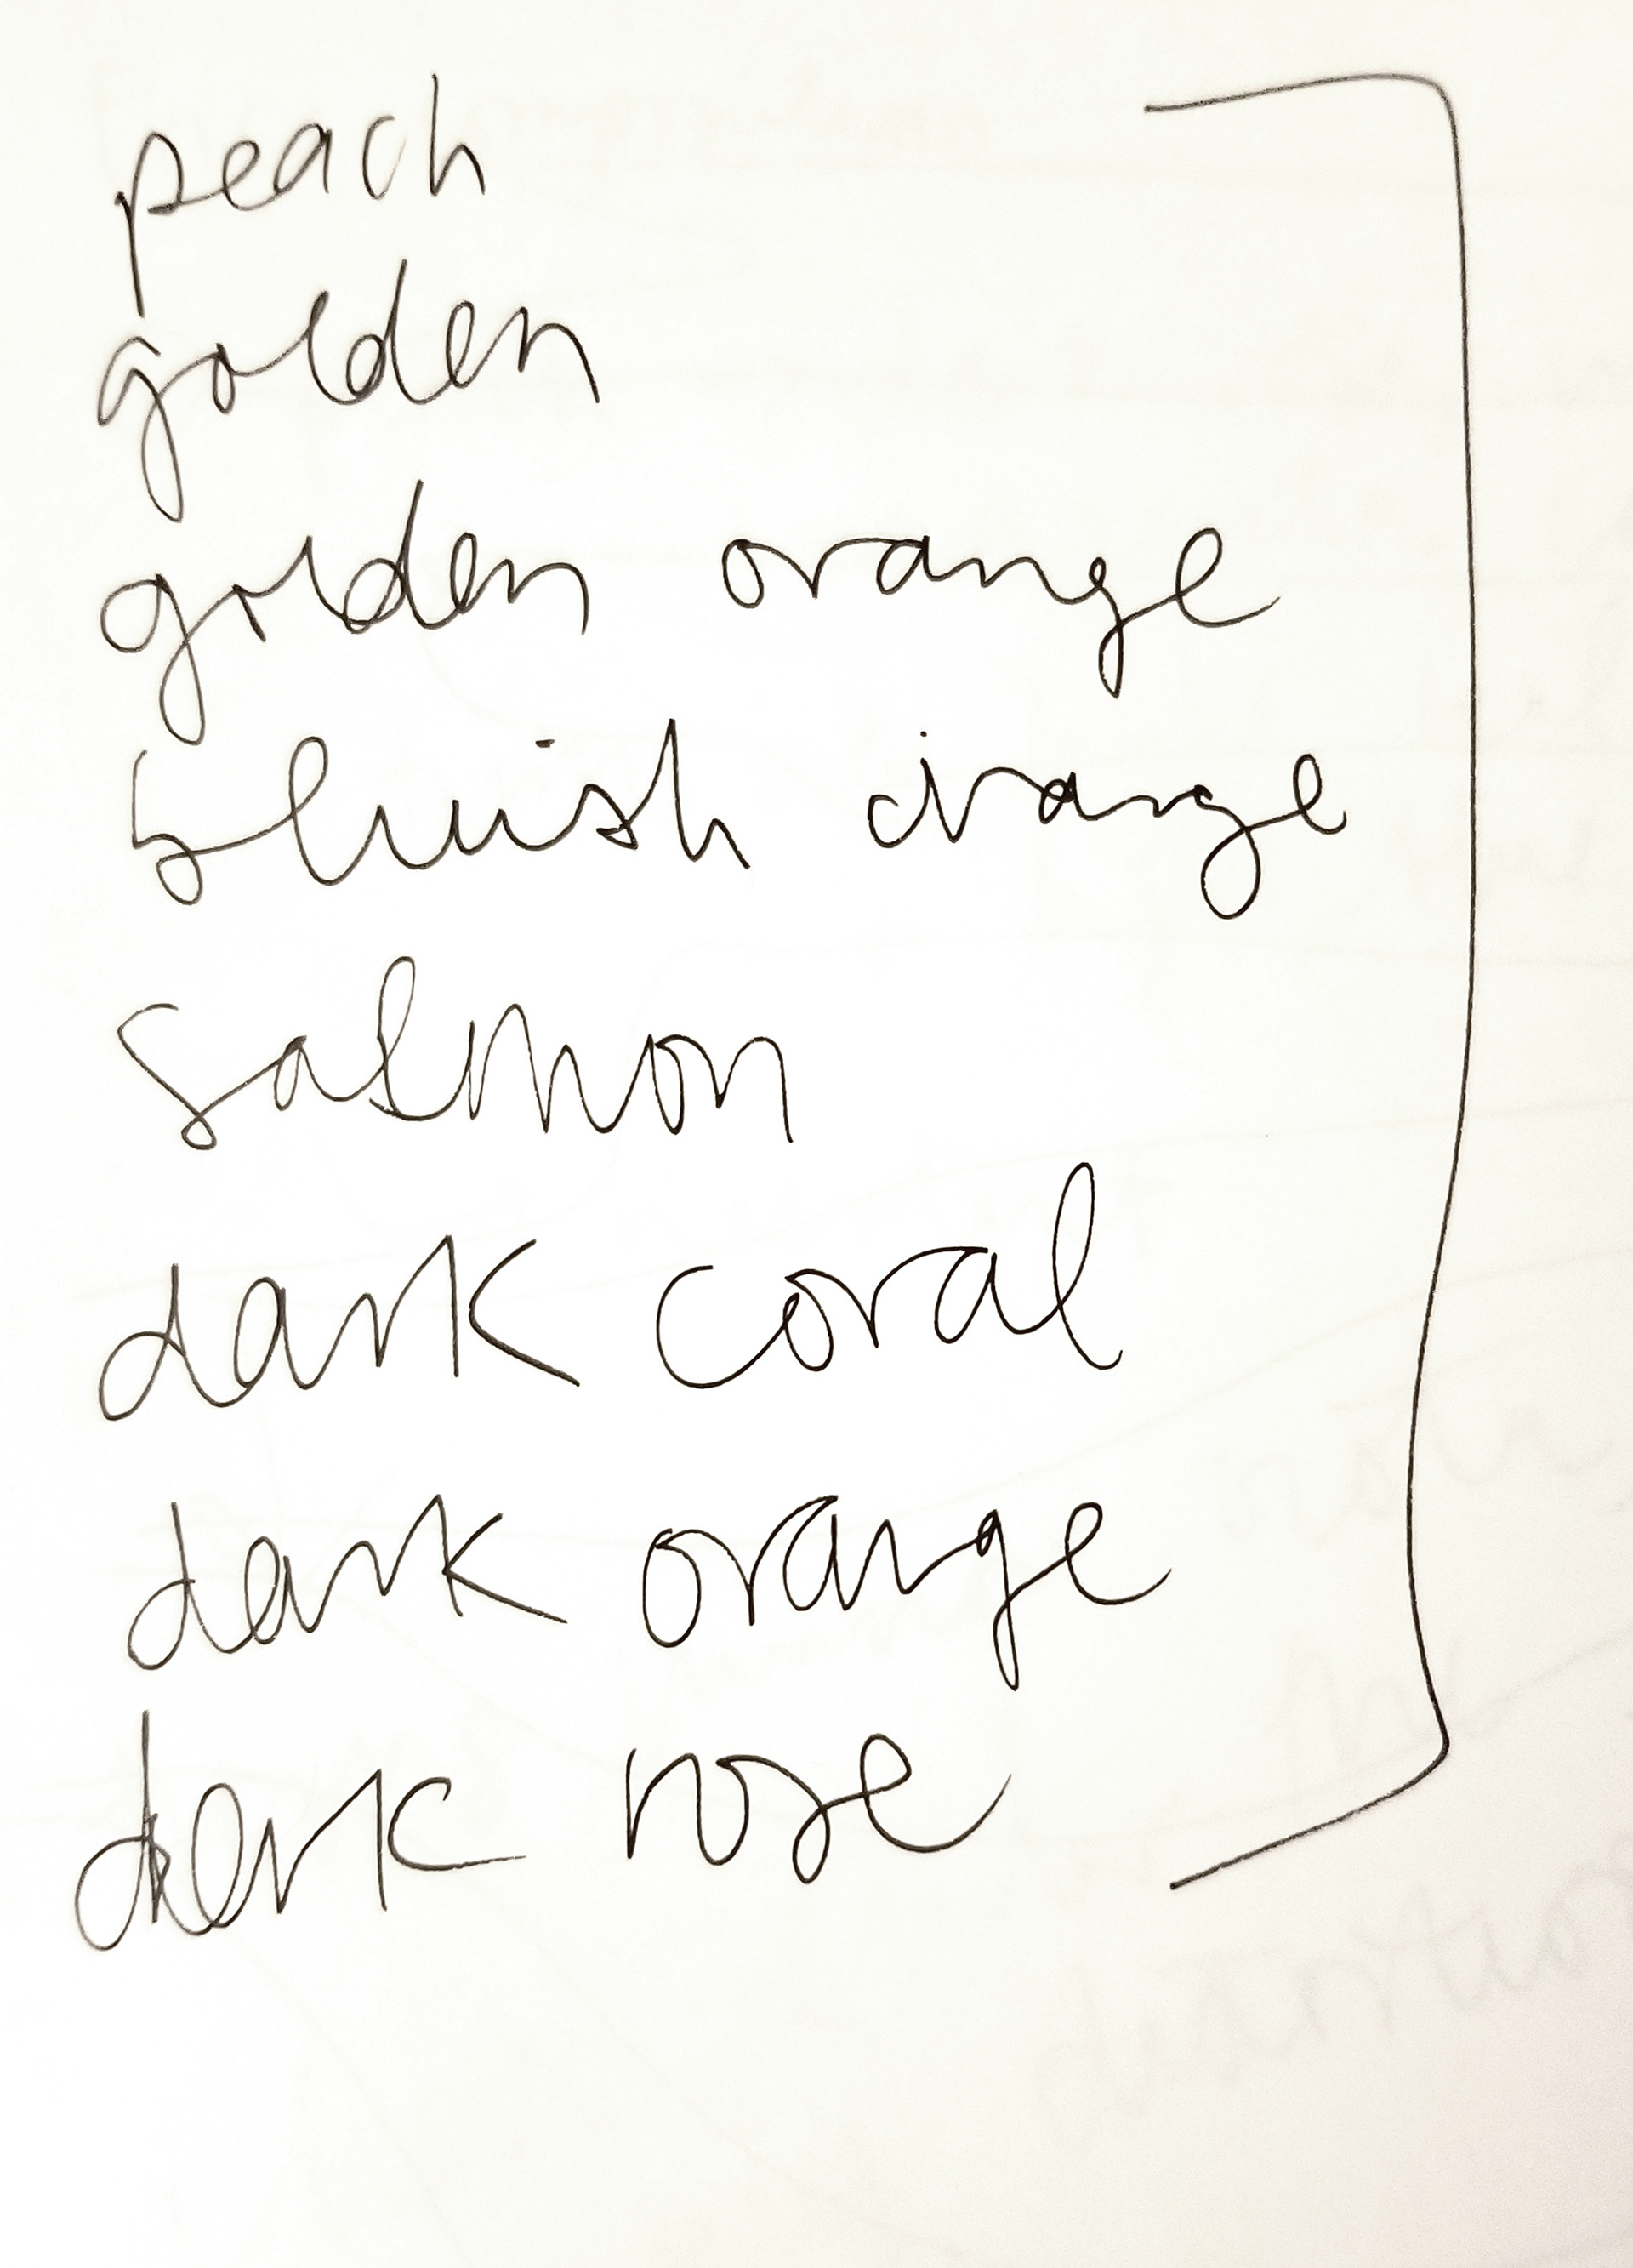 peach
golden
golden orange
bluish orange
salmon
dark coral
dark orange
dark rose